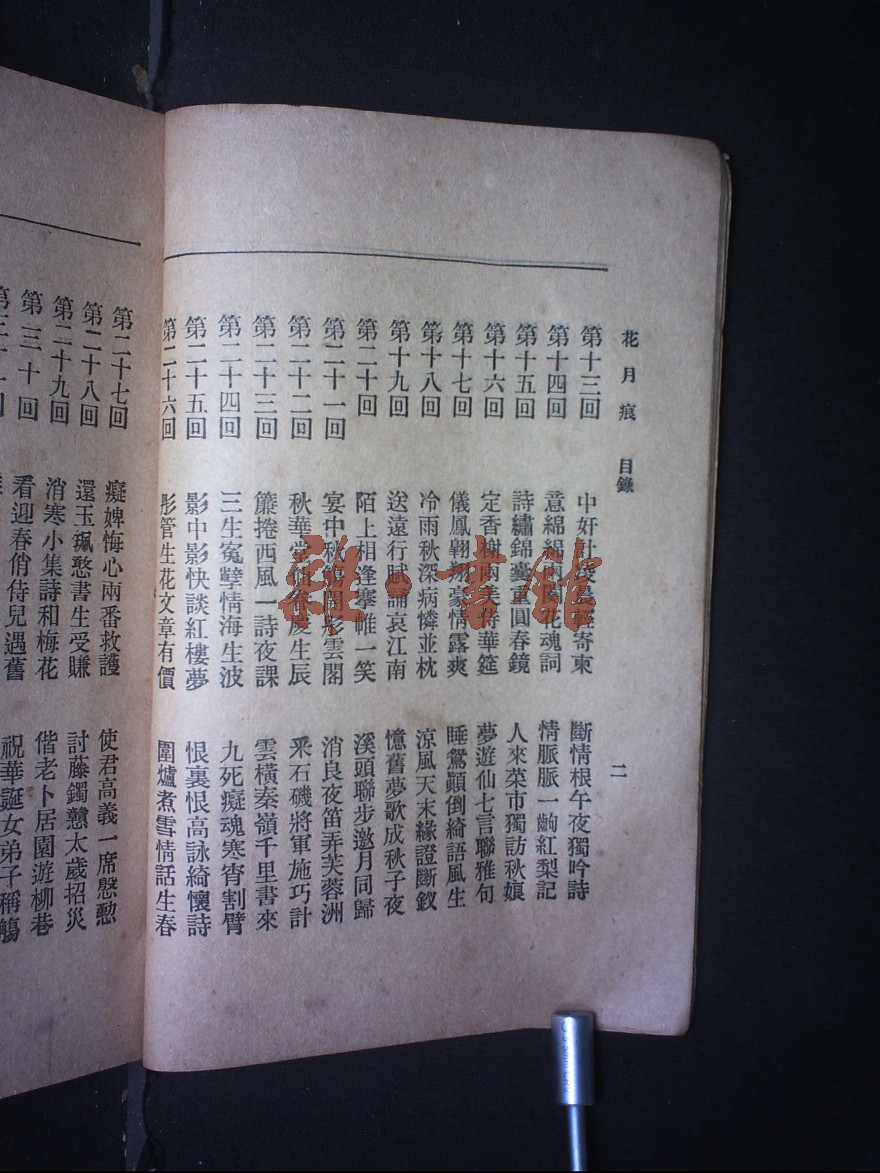 花月痕 目錄 二
第十三回 中奸計凌晨輕寄柬 斷情根午夜獨吟詩
第十四回 意綿綿兩闋花魂詞 情脈脈一齣紅梨記
第十五回 詩繡錦囊重圓春鏡 人來菜市獨訪秋孃
第十六回 定香榭兩美侍華筵 夢遊仙七言聯雅句
第十七回 儀鳳翱翔豪情露爽 睡鴛顚倒綺語風生
第十八回 冷雨秋深病憐並枕 涼風天末緣證斷釵
第十九回 送遠行賦誦哀江南 憶舊夢歌成秋子夜
第二十回 陌上相逢搴帷一笑 溪頭聯步邀月同歸
第二十一回 宴中秋觴開彤雲閣 消良夜笛弄芙蓉洲
第二十二回 秋華堂仙眷慶生辰 釆石磯將軍施巧計
第二十三回 簾捲西風一詩夜課 雲橫秦嶺千里書來
第二十四回 三生冤孽情海生波 九死癡魂寒宵割臂
第二十五回 影中影快談紅樓夢 恨裏恨高詠綺懷詩
第二十六回 彤管生花文章有價 圍爐煮雪情話生春
第二十七回 癡婢悔心兩番救護 使君高義一席慇懃
第二十八回 還玉珮憨書生受賺 討藤鐲戇太歲招災
第二十九回 消寒小集詩和梅花 偕老卜居園遊柳巷
第三十回 看迎春俏侍兒遇舊 祝華誕女弟子稱觴
雜·書館